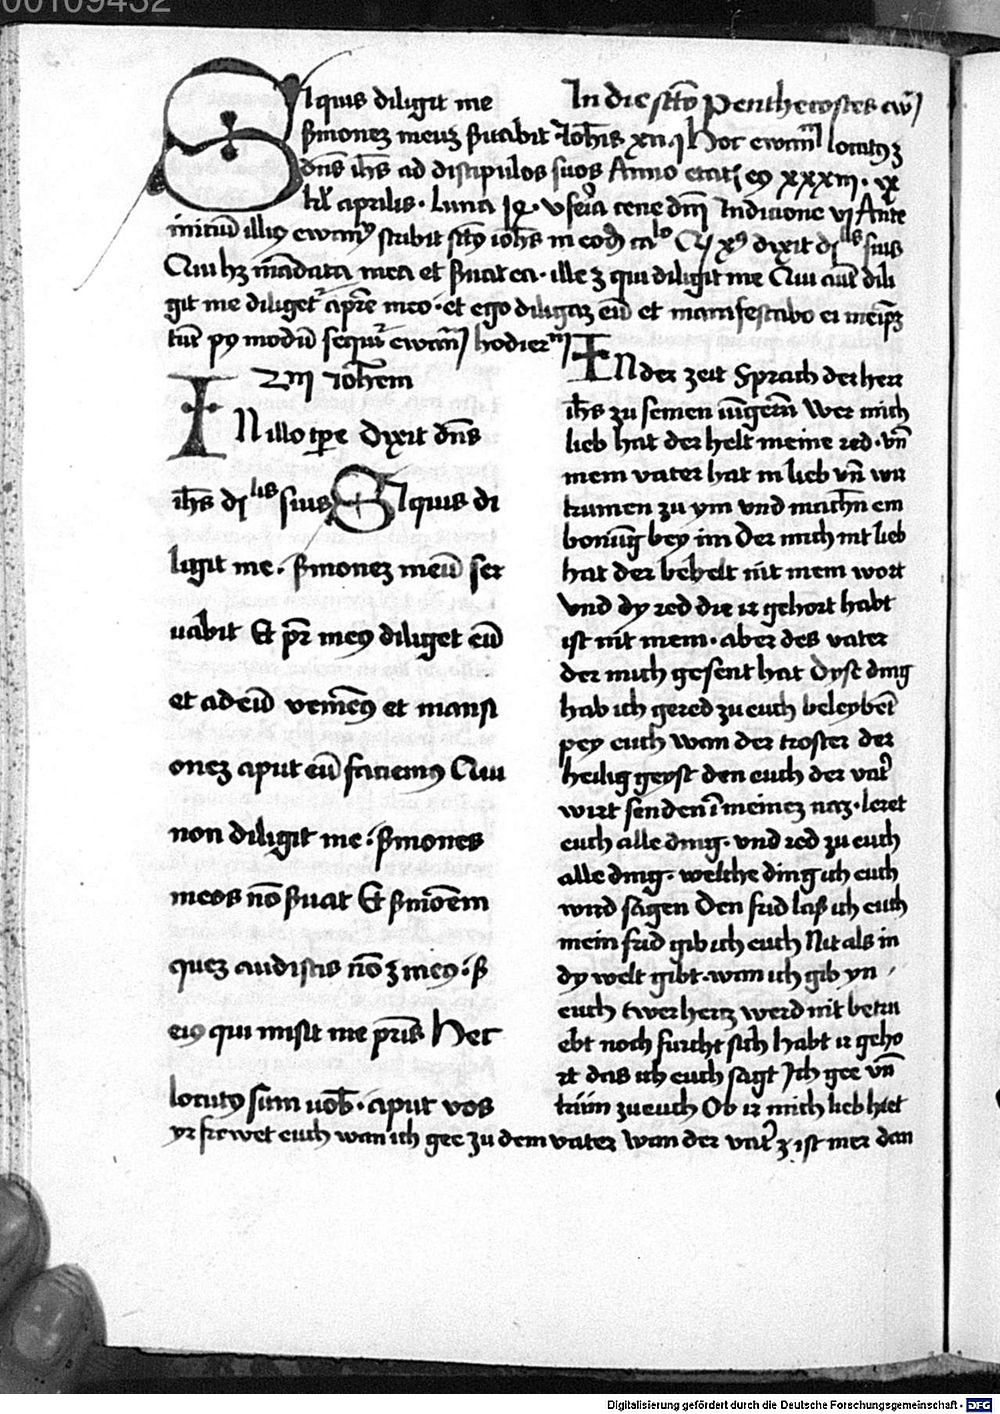 00109432
In die scto Penthecostes ew
Si quis diligit me
smonez meuz suabit Joh̄is xıııı Hoc ewanı locutuz
dn̄s ih̄s ad discipulos suos Anno etatis eius xxxııı
kl̄ aprilis · luna · v feria cene dn̄i Indictione vı Ante
initiū illiꝰ ewanı scribit sctꝰ ioh̄s in eodē ca dixit suis
Qui hꝫ mādata mea et suat ea · ille ꝫ qui diligit me Qui aut̄ dili
git me diliget̄ a pr̄e meo · et ego diligaz eū et manifestabo ei meip̄ꝫ
modū sequit̄ ewanı hodiern
Joh̄em
IN illo tp̄e dixit dn̄s
ih̄s suis Si quis di
ligit me · smonez meū ser
uabit Et pr̄ meꝰ diliget eū
et ad eū veniemꝰ et mansi
onez aput eū faciemꝰ Qui
non diligit me · smones
meos nō suat Et smonem
quez audistis nō ꝫ meꝰ · s
eiꝰ qui misit me pr̄is Hec
locutꝰ sum vob̄ · aput vos
IN der zeit Sprach der herr
ih̄s zu seinen iūgern̄ Wer mich
lieb hat der helt meine red · vn̄
mein vater hat in lieb vn̄ wir
kumen zu ym vnd machn̄ ein
bonūg bey im Der mich nit lieb
hat der behelt nit mein wort
Vnd dy red die ir gehort habt
ist nit mein · aber des vater
der mich gesent hat Dyse ding
hab ich gered zu euch beleybet
pey euch Wan der troster der
heilig geyst den euch der vat̄
wirt senden ī meinez naz · leret
euch alle ding · vnd red zu euch
alle ding · welche ding ich euch
wird sagen Den frid laß ich euch
mein frid gib ich euch Nit als in
dy welt gibt · wan ich gib yn
euch ewer hertz werd nit betru
ebt noch furcht sich habt ir geho
rt das ich euch sagt Ich gee vn̄
kum zu euch Ob ir mich lieb hiet
yr frewet euch wan ich gee zu dem vater Wan der vat̄ ꝫ ist mer dan
Digitalisierung gefördert durch die Deutsche Forschungsgemeinschaft - DFG